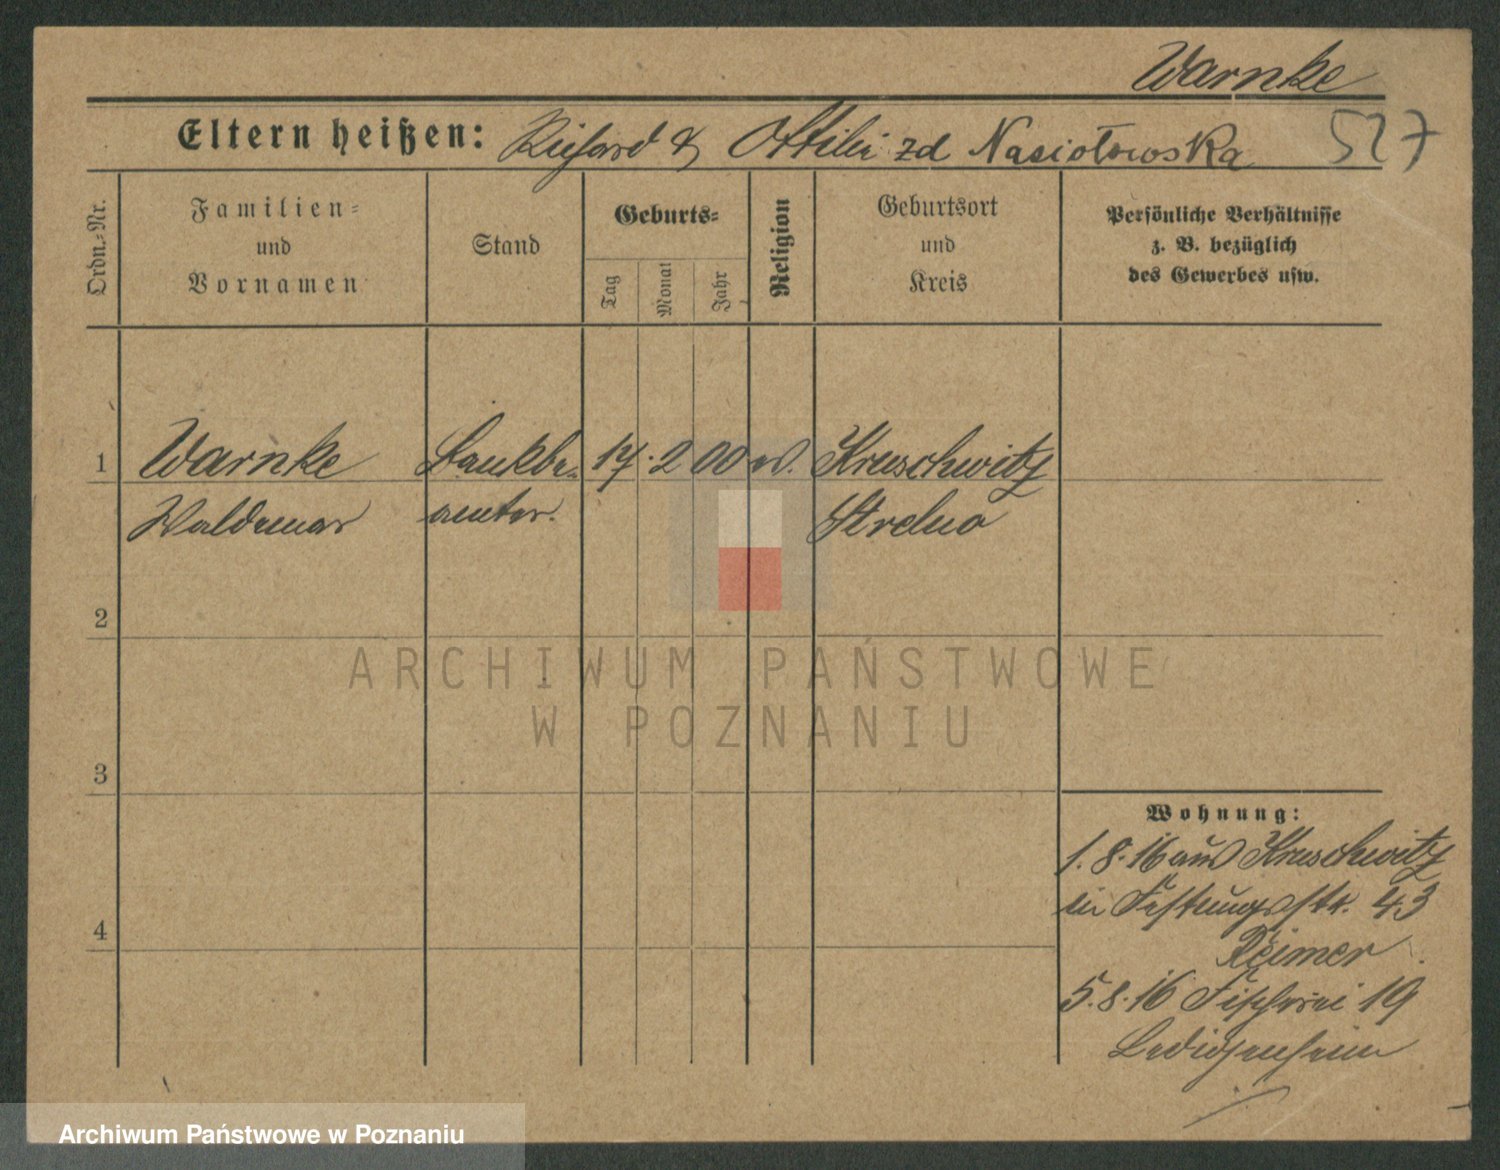 Warnke
527
Eltern heißen: Richard & Ottilie zd Nasiotowska
Ordn.-Nr.
Familien-
und
Vornamen
Stand
Geburts-
Tag
Monat
Jahr
Religion
Geburtsort
und
Kreis
Persönliche Verhältnisse
z. B. bezüglich
des Gewerbes usw.
1 Warnke Bankbe- 17. 2 00 ev. Kruschwitz
Waldemar amter. Strelno
2
3
4
Wohnung:
1.8.16 aus Kruschwitz
in Festungsstr. 43
Reimer
5.8.16 Fischerei 19
Ledigenheim
ARCHIWUM PAŃSTWOWE
W POZNANIU
Archiwum Państwowe w Poznaniu